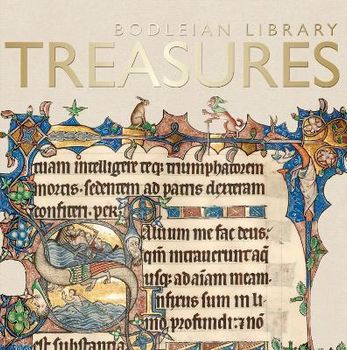 BODLEIAN LIBRARY
TREASURES
tuam intelligere teq; triumphatorem
mortis · sedentem ad patris dexteram
confiteri. per.
Saluum me fac deus:
qm̄ intrauerunt aq̄
usq; ad aīam meam.
Infixus sum in li
mo, profundi: ⁊ nō
est substantia